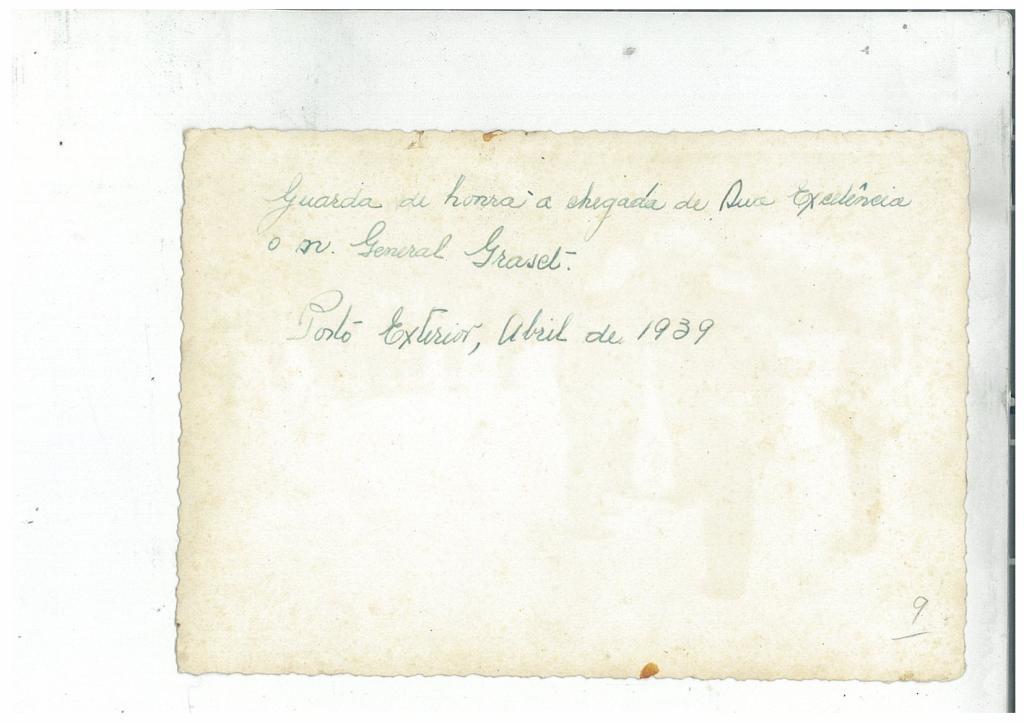 Guarda de honra à chegada de Sua Excelência
o sr. General Graset.
Porto Exterior, Abril de 1939
9